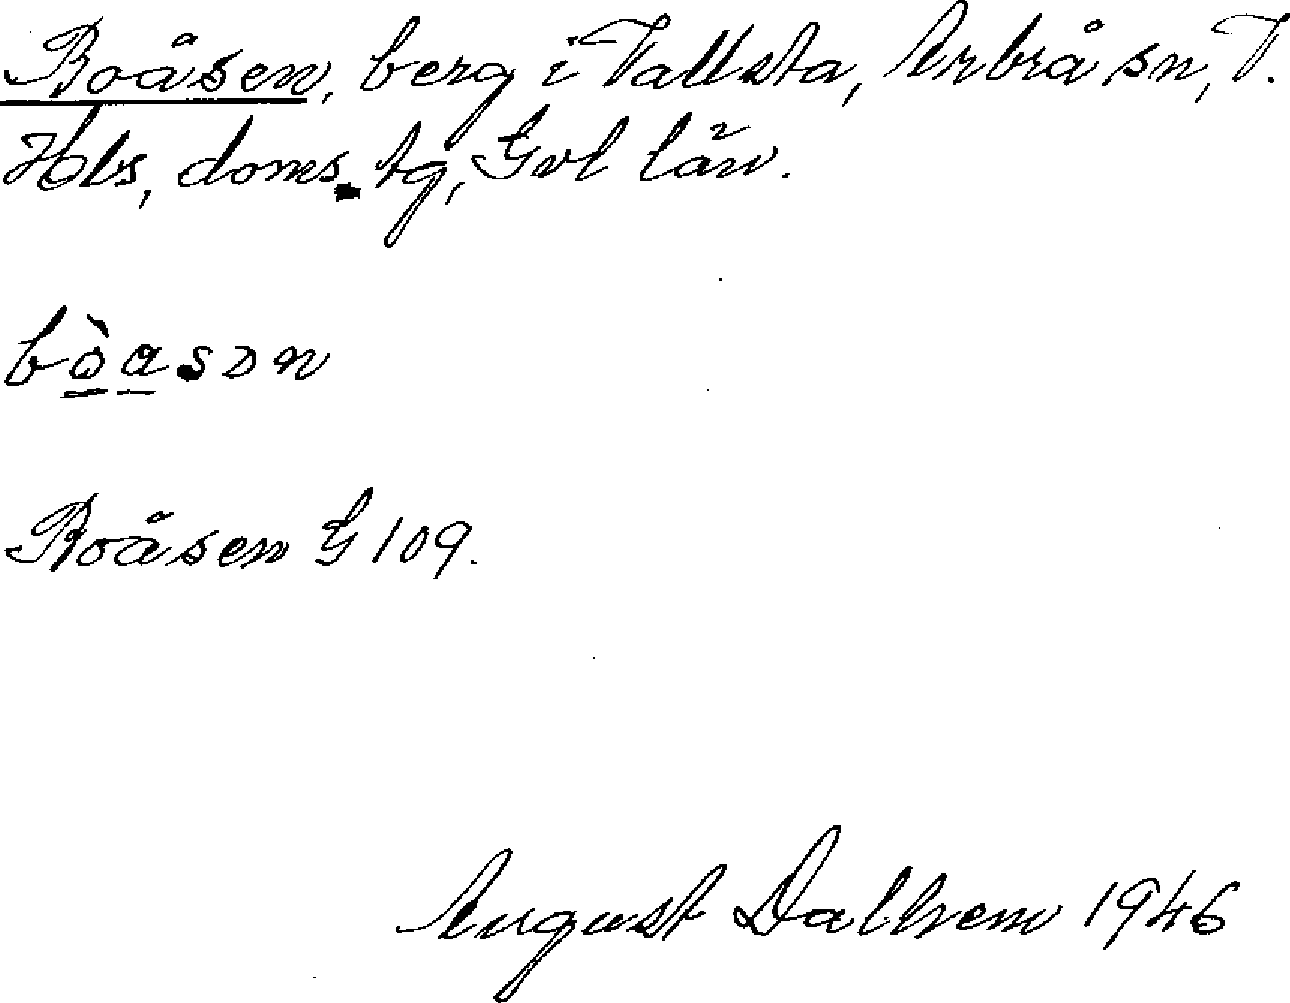 Boåsen, berg i Vallsta, Arbrå sn, V.
Hls, doms. tg, Gvl län.
bòasən
Boåsen G 109.
August Dalhem 1946